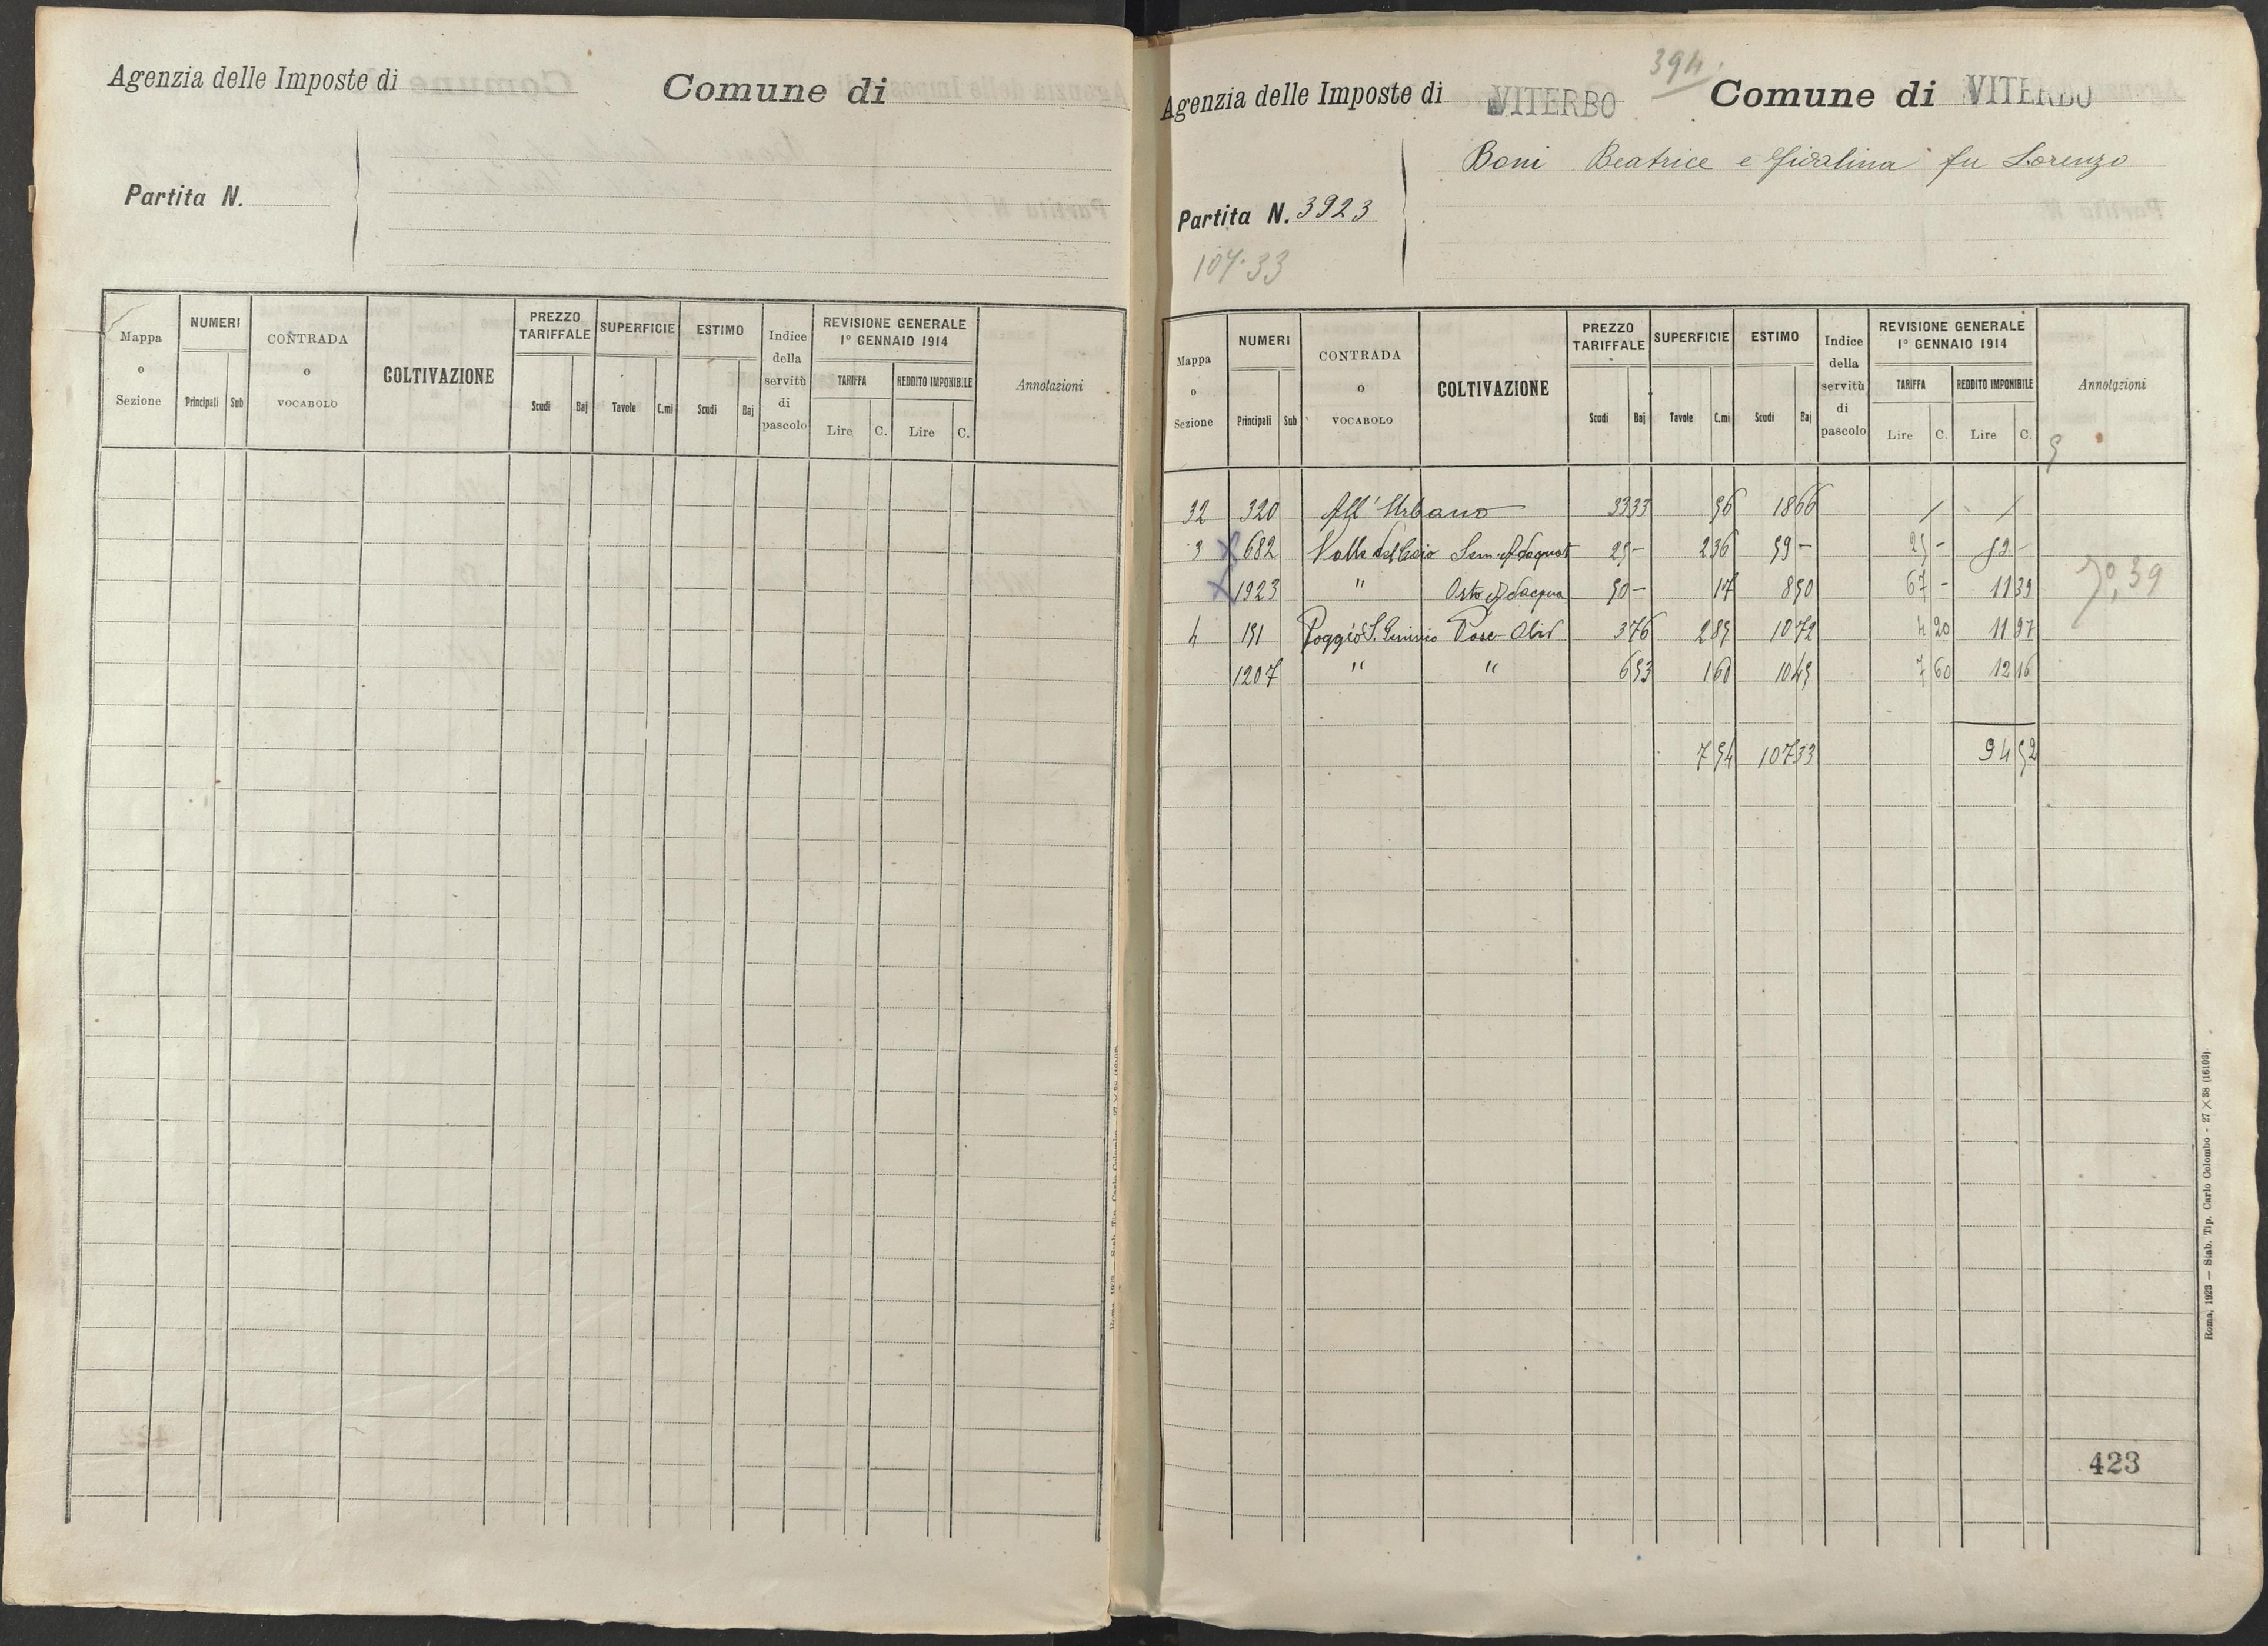 Agenzia delle Imposte di
Comune di
Partita N.
Mappa o Sezione
NUMERI
Principali Sub
CONTRADA o VOCABOLO
COLTIVAZIONE
PREZZO TARIFFALE
Scudi Baj
SUPERFICIE
Tavole C.mi
ESTIMO
Scudi Baj
Indice della servitù di pascolo
REVISIONE GENERALE
1° GENNAIO 1914
TARIFFA
Lire C.
REDDITO IMPONIBILE
Lire C.
Annotazioni
394
Agenzia delle Imposte di VITERBO
Comune di VITERBO
Boni Beatrice e fu Lorenzo
Partita N. 3923
107.33
Mappa o Sezione
NUMERI
Principali Sub
CONTRADA o VOCABOLO
COLTIVAZIONE
PREZZO TARIFFALE
Scudi Baj
SUPERFICIE
Tavole C.mi
ESTIMO
Scudi Baj
Indice della servitù di pascolo
REVISIONE GENERALE
1° GENNAIO 1914
TARIFFA
Lire C.
REDDITO IMPONIBILE
Lire C.
Annotazioni
32 320 All' Urbano 33 33 56 18 66 / /
3 682 Valle Sem. Adacquat 25 - 2 36 59 - 25 - 59 -
1923 " Orto Adacqua 50 - 17 8 50 67 - 11 39
70,39
4 151 Poggio S. Pasc. Oliv 3 76 2 85 10 72 4 20 11 97
1207 " " 6 53 1 60 10 45 7 60 12 16
7 54 107 33 94 52
423
Roma, 1923 — Stab. Tip. Carlo Colombo - 27 × 38 (16108).